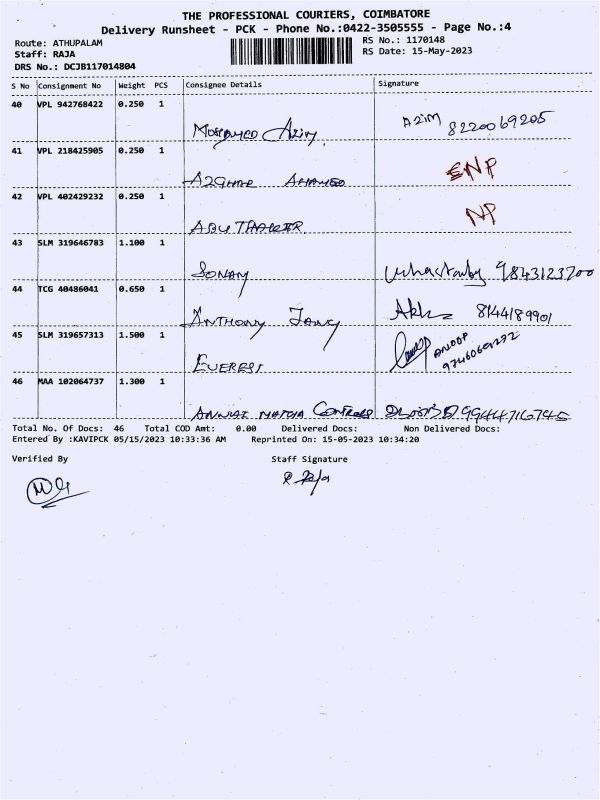 THE PROFESSIONAL COURIERS, COIMBATORE
Delivery Runsheet - PCK - Phone No.:0422-3505555 - Page No.:4
Route: ATHUPALAM RS No.: 1170148
Staff: RAJA RS Date: 15-May-2023
DRS No.: DCJB117014804
S No Consignment No Weight PCS Consignee Details Signature
40 VPL 942768422 0.250 1
Mohamed Azim AZIM 8220069205
41 VPL 218425905 0.250 1
Azghar Ahamed NP
42 VPL 402429232 0.250 1
Abu Thaheer NP
43 SLM 319646783 1.100 1
Sonam 9843123700
44 TCG 40486041 0.650 1
Anthony 8144189901
45 SLM 319657313 1.500 1
Everest ANOOP
46 MAA 102064737 1.300 1
Controls 9944716745
Total No. Of Docs: 46 Total COD Amt: 0.00 Delivered Docs: Non Delivered Docs:
Entered By :KAVIPCK 05/15/2023 10:33:36 AM Reprinted On: 15-05-2023 10:34:20
Verified By Staff Signature